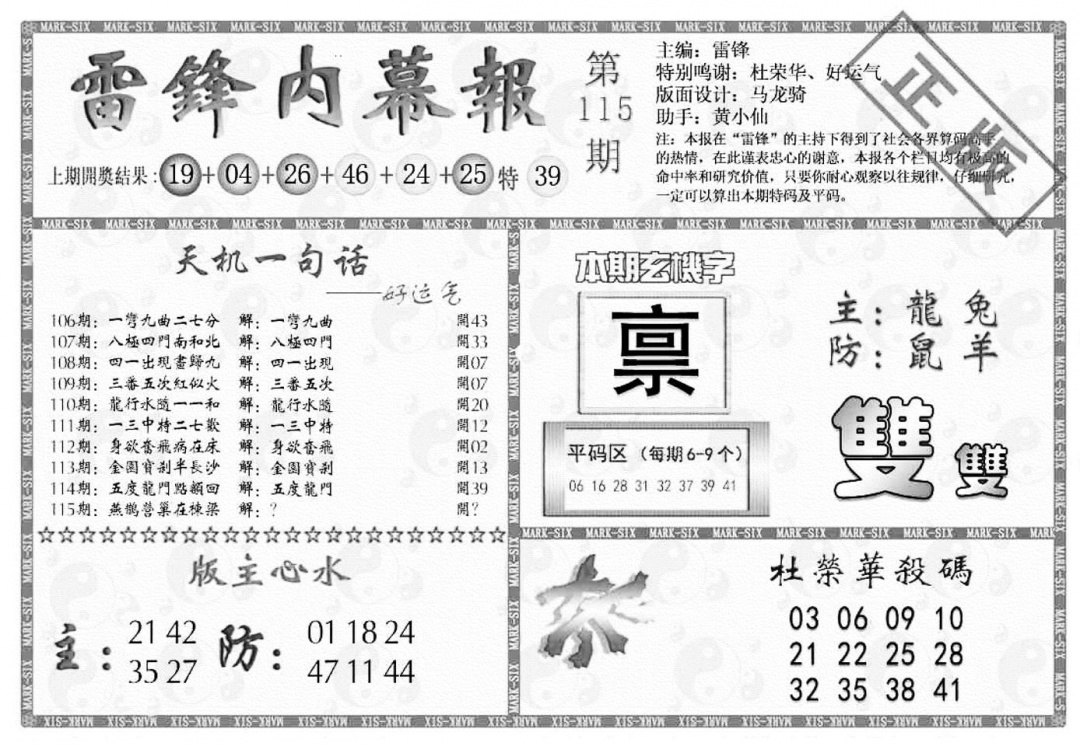 雷鋒内幕報
第
115
期
主编：雷锋
特别鸣谢：杜荣华、好运气
版面设计：马龙骑
助手：黄小仙
注：本报在“雷锋”的主持下得到了社会各界算码高手
的热情，在此谨表忠心的谢意，本报各个栏目均有极高的
命中率和研究价值，只要你耐心观察以往规律，仔细研究，
一定可以算出本期特码及平码。
正版
上期開獎结果：19+04+26+46+24+25特 39
天机一句话
——好运气
106期：一彎九曲二七分 解：一彎九曲 開43
107期：八極四門南和北 解：八極四門 開33
108期：四一出現畫歸九 解：四一出現 開07
109期：三番五次紅似火 解：三番五次 開07
110期：龍行水隨一一和 解：龍行水隨 開20
111期：一三中特二七歡 解：一三中特 開12
112期：身欲奮飛病在床 解：身欲奮飛 開02
113期：金圓寶剎半長沙 解：金圓寶剎 開13
114期：五度龍門點額回 解：五度龍門 開39
115期：燕鵲營巢在棟梁 解：？ 開？
☆☆☆☆☆☆☆☆☆☆☆☆☆☆☆☆☆☆☆☆☆☆☆
本期玄機字
禀
主：龍 兔
防：鼠 羊
平码区（每期6-9个）
06 16 28 31 32 37 39 41
雙 雙
版主心水
主：
21 42
35 27
防：
01 18 24
47 11 44
杀
杜榮華殺碼
03 06 09 10
21 22 25 28
32 35 38 41
MARK-SIX